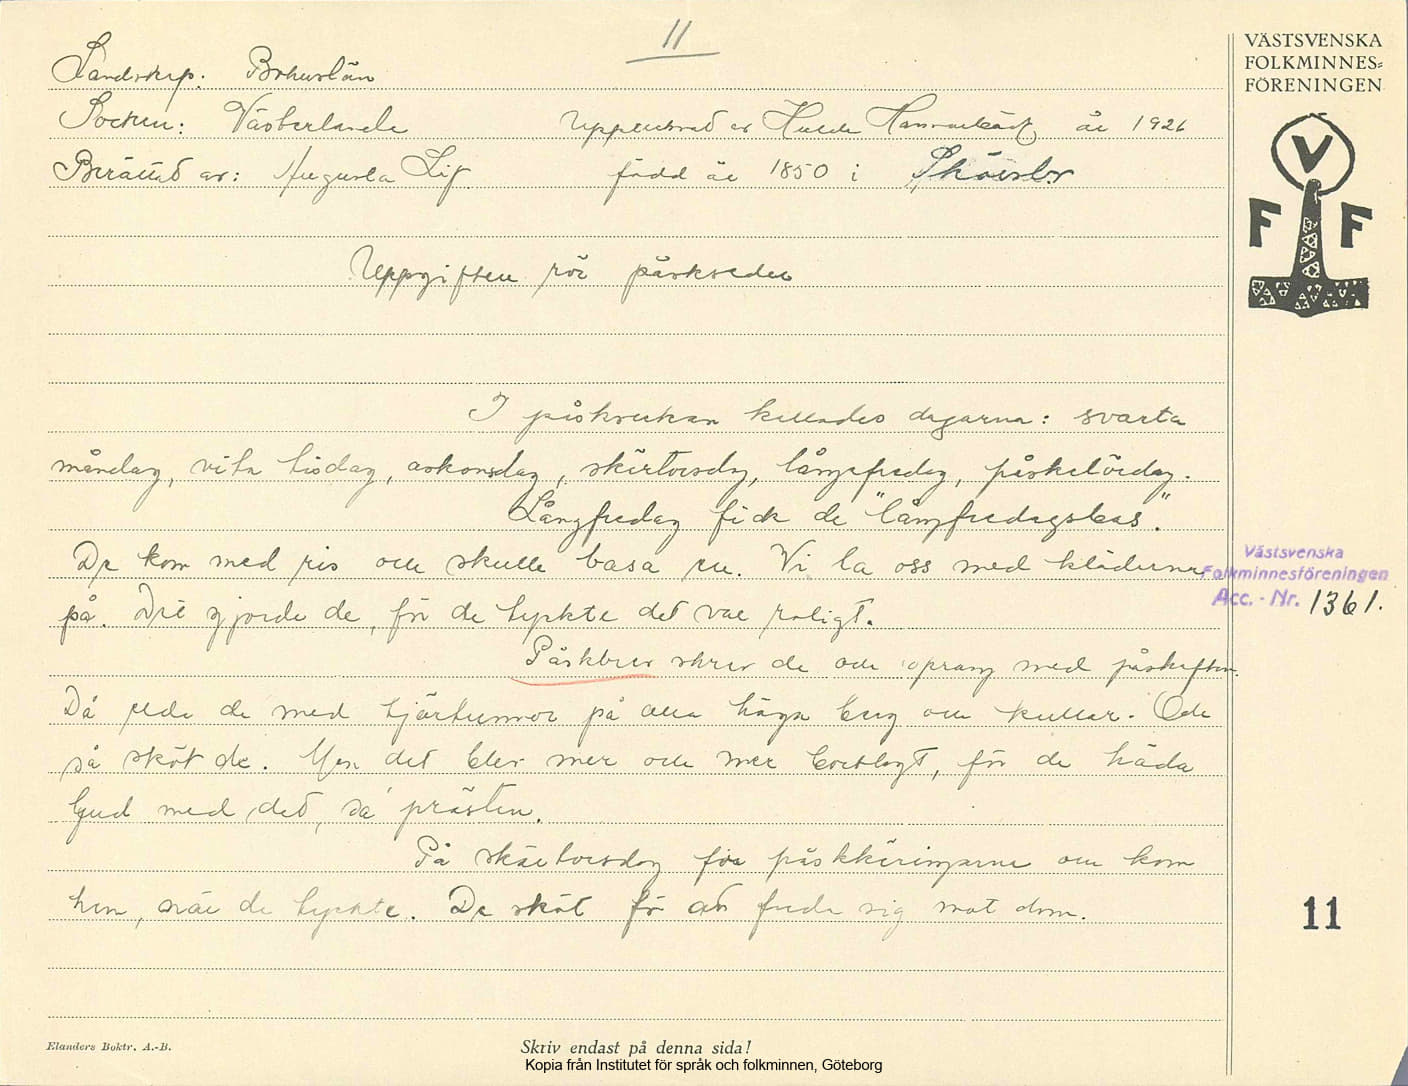 11
VÄSTSVENSKA
FOLKMINNES=
FÖRENINGEN
V
F F
Landskap: Bohuslän
Socken: Västerlanda Upptecknad av Hulda Hammarbäck år 1926
Berättad av: Augusta Lif född år 1850 i
Uppgiften rör påskseder
I påskveckan kallades dagarna: svarta
måndag, vita tisdag, askonsdag, skärtorsdag, långfredag, påskelördag.
Långfredag fick de "långfredagsbas".
De kom med ris och skulle basa en. Vi la oss med kläderna
på. Det gjorde de, för de tyckte det var roligt.
Påskbrev skrev de och sprang med påskafton.
Då elda de med tjärtunnor på alla höga berg och kullar. Och
så sköt de. Men det blev mer och mer bortlagt, för de häda
Gud med det, sa prästen.
På skärtorsdag for påskkäringarna och kom
hem, när de tyckte. De sköt för att freda sig mot dom.
Västsvenska
Folkminnesföreningen
Acc. - Nr. 1361.
11
Elanders Boktr. A.-B.
Skriv endast på denna sida!
Kopia från Institutet för språk och folkminnen, Göteborg